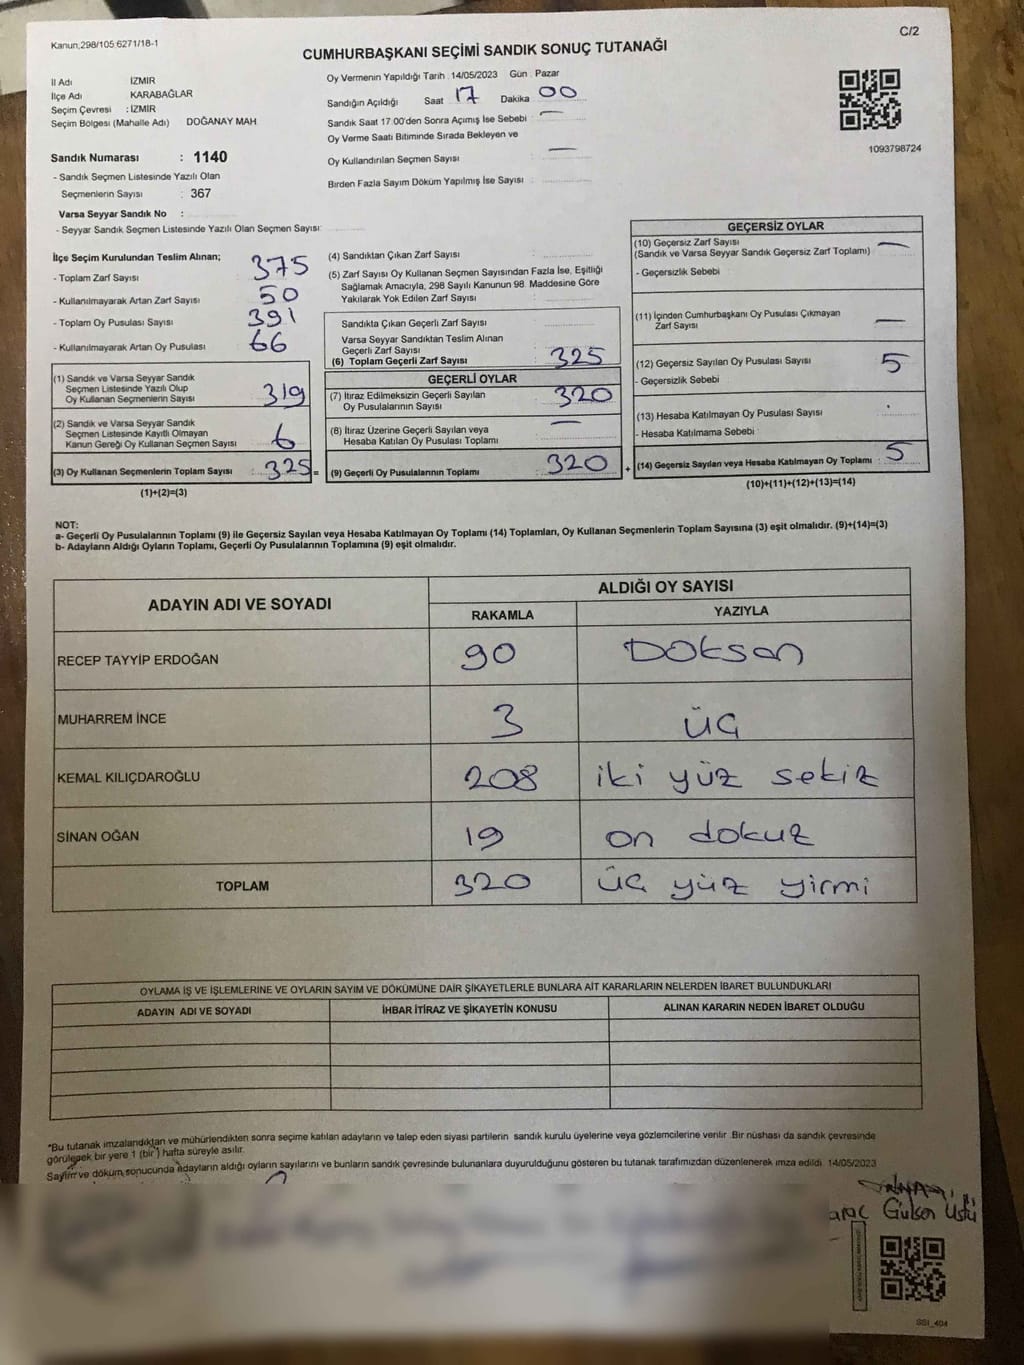 Kanun;298/105;6271/18-1
C/2
CUMHURBAŞKANI SEÇİMİ SANDIK SONUÇ TUTANAĞI
İl Adı İZMİR
İlçe Adı KARABAĞLAR
Seçim Çevresi : İZMİR
Seçim Bölgesi (Mahalle Adı) DOĞANAY MAH
Sandık Numarası : 1140
- Sandık Seçmen Listesinde Yazılı Olan
Seçmenlerin Sayısı : 367
Varsa Seyyar Sandık No :
- Seyyar Sandık Seçmen Listesinde Yazılı Olan Seçmen Sayısı:
Oy Vermenin Yapıldığı Tarih : 14/05/2023 Gün : Pazar
Sandığın Açıldığı Saat 17 Dakika 00
Sandık Saat 17:00'den Sonra Açımış İse Sebebi : —
Oy Verme Saati Bitiminde Sırada Bekleyen ve
Oy Kullandırılan Seçmen Sayısı : —
Birden Fazla Sayım Döküm Yapılmış İse Sayısı :
1093798724
İlçe Seçim Kurulundan Teslim Alınan;
- Toplam Zarf Sayısı 375
- Kullanılmayarak Artan Zarf Sayısı 50
- Toplam Oy Pusulası Sayısı 391
- Kullanılmayarak Artan Oy Pusulası 66
(1) Sandık ve Varsa Seyyar Sandık
Seçmen Listesinde Yazılı Olup
Oy Kullanan Seçmenlerin Sayısı 319
(2) Sandık ve Varsa Seyyar Sandık
Seçmen Listesinde Kayıtlı Olmayan
Kanun Gereği Oy Kullanan Seçmen Sayısı 6
(3) Oy Kullanan Seçmenlerin Toplam Sayısı : 325 =
(1)+(2)=(3)
(4) Sandıktan Çıkan Zarf Sayısı :
(5) Zarf Sayısı Oy Kullanan Seçmen Sayısından Fazla İse, Eşitliği
Sağlamak Amacıyla, 298 Sayılı Kanunun 98. Maddesine Göre
Yakılarak Yok Edilen Zarf Sayısı :
Sandıkta Çıkan Geçerli Zarf Sayısı :
Varsa Seyyar Sandıktan Teslim Alınan
Geçerli Zarf Sayısı :
(6) Toplam Geçerli Zarf Sayısı : 325
GEÇERLİ OYLAR
(7) İtiraz Edilmeksizin Geçerli Sayılan
Oy Pusulalarının Sayısı : 320
(8) İtiraz Üzerine Geçerli Sayılan veya
Hesaba Katılan Oy Pusulası Toplamı : —
(9) Geçerli Oy Pusulalarının Toplamı : 320 +
GEÇERSİZ OYLAR
(10) Geçersiz Zarf Sayısı : —
(Sandık ve Varsa Seyyar Sandık Geçersiz Zarf Toplamı)
- Geçersizlik Sebebi :
(11) İçinden Cumhurbaşkanı Oy Pusulası Çıkmayan
Zarf Sayısı : —
(12) Geçersiz Sayılan Oy Pusulası Sayısı : 5
- Geçersizlik Sebebi
(13) Hesaba Katılmayan Oy Pusulası Sayısı :
- Hesaba Katılmama Sebebi :
(14) Geçersiz Sayılan veya Hesaba Katılmayan Oy Toplamı : 5
(10)+(11)+(12)+(13)=(14)
NOT:
a- Geçerli Oy Pusulalarının Toplamı (9) ile Geçersiz Sayılan veya Hesaba Katılmayan Oy Toplamı (14) Toplamları, Oy Kullanan Seçmenlerin Toplam Sayısına (3) eşit olmalıdır. (9)+(14)=(3)
b- Adayların Aldığı Oyların Toplamı, Geçerli Oy Pusulalarının Toplamına (9) eşit olmalıdır.
ADAYIN ADI VE SOYADI
ALDIĞI OY SAYISI
RAKAMLA YAZIYLA
RECEP TAYYİP ERDOĞAN 90 Doksan
MUHARREM İNCE 3 üç
KEMAL KILIÇDAROĞLU 208 iki yüz sekiz
SİNAN OĞAN 19 on dokuz
TOPLAM 320 üç yüz yirmi
OYLAMA İŞ VE İŞLEMLERİNE VE OYLARIN SAYIM VE DÖKÜMÜNE DAİR ŞİKAYETLERLE BUNLARA AİT KARARLARIN NELERDEN İBARET BULUNDUKLARI
ADAYIN ADI VE SOYADI İHBAR İTİRAZ VE ŞİKAYETİN KONUSU ALINAN KARARIN NEDEN İBARET OLDUĞU
*Bu tutanak imzalandıktan ve mühürlendikten sonra seçime katılan adayların ve talep eden siyasi partilerin sandık kurulu üyelerine veya gözlemcilerine verilir. Bir nüshası da sandık çevresinde
görülecek bir yere 1 (bir ) hafta süreyle asılır.
Sayım ve döküm sonucunda adayların aldığı oyların sayılarını ve bunların sandık çevresinde bulunanlara duyurulduğunu gösteren bu tutanak tarafımızdan düzenlenerek imza edildi. 14/05/2023
Gülsen Üstü
SSI_404